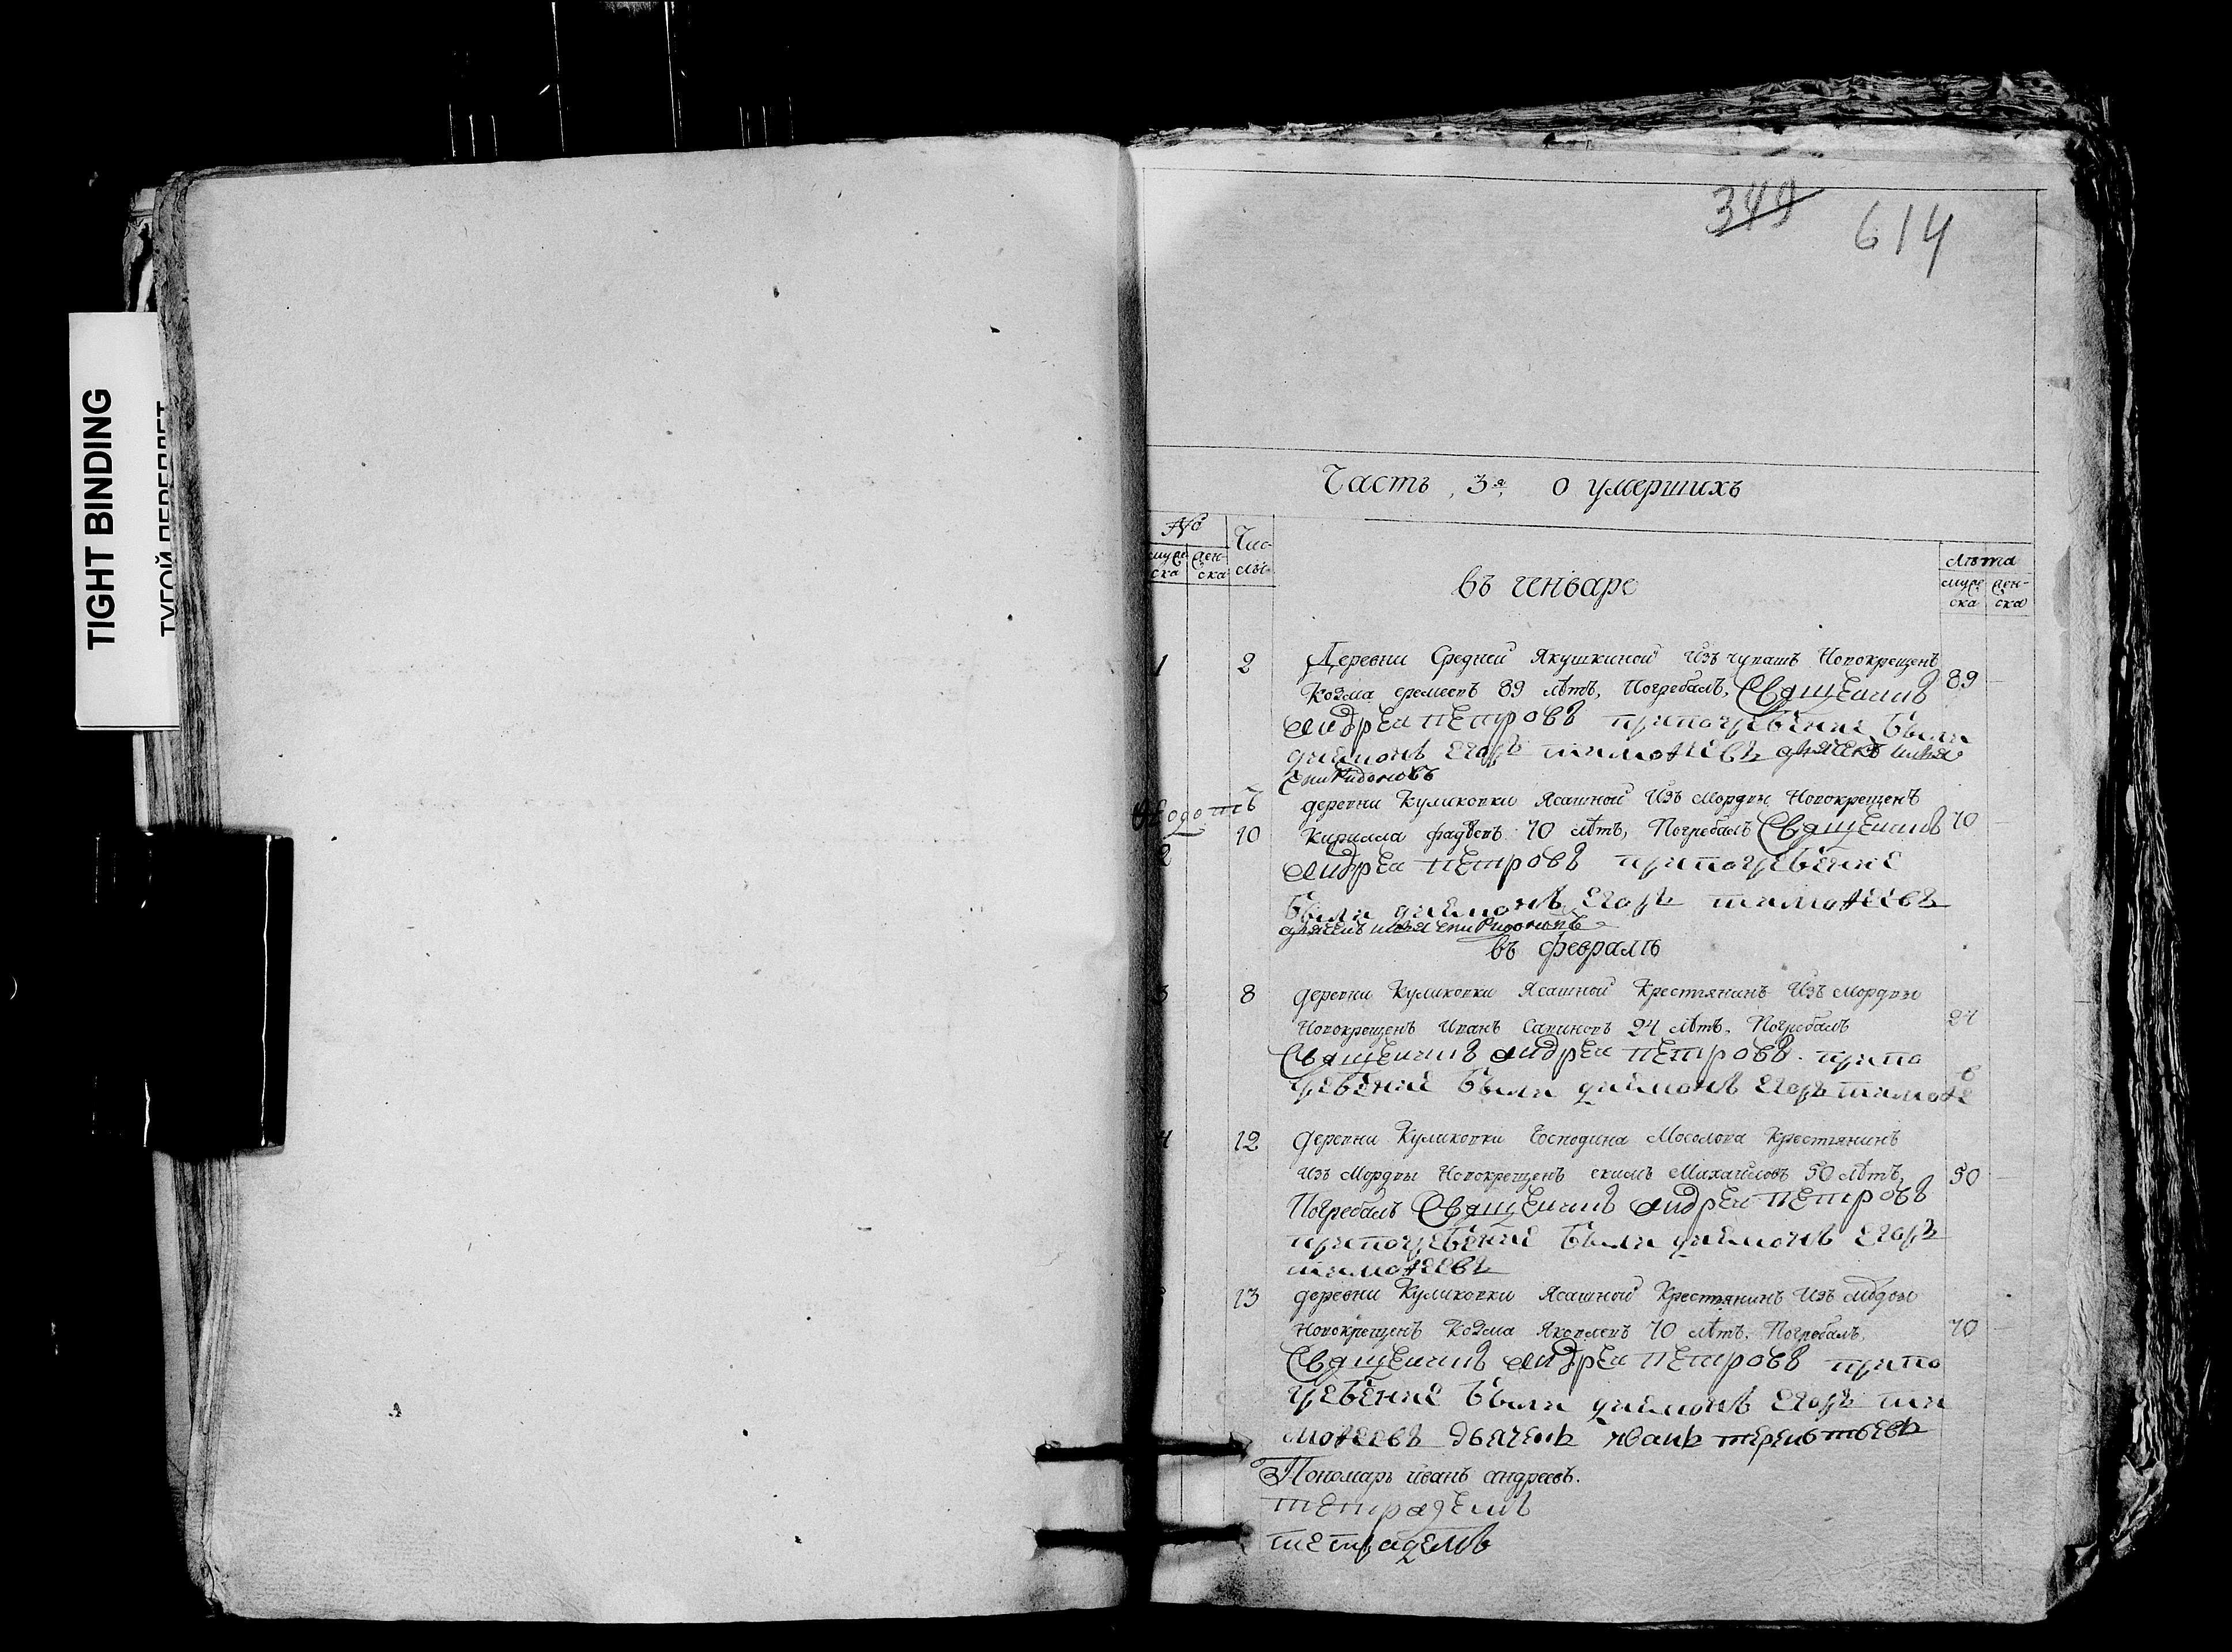 TIGHT BINDING
ТУГОЙ ПЕРЕПЛЕТ
349 614
Часть 3я о умершихъ
№ Чис-
мужe- жен- лы
ска ска
Лѣта
муже жен-
ска ска
въ генваре
1 2 Деревни Средней Якушкиной Изъ чувашъ Новокрещенъ
Козма еремеевъ 89 лѣтъ, Погребалъ, Священникъ 89
андреи петровъ припогребение были
диаконъ егоръ тимоѳеевъ дьячекъ илья
спиридоновъ
7 деревни Куликовки Ясашной Изъ мордвы Новокрещенъ
10 Кирилла фадѣевъ 70 лѣтъ, Погребалъ Священникъ 70
2 андреи петровъ припогребение
были диаконъ егоръ тимоѳеевъ
дьячекъ илья спиридоновъ
въ февралѣ
3 8 деревни Куликовки Ясашной Крестьянинъ Изъ Мордвы
Новокрещенъ Иванъ Савиновъ 24 лѣтъ. Погребалъ 24
Священникъ андреи петровъ. припо
гребение были диаконъ егоръ тимоѳе
4 12 деревни Куликовки Господина Мосолова Крестьянинъ
изъ Мордвы Новокрещенъ екимъ Михайловъ 50 лѣтъ, 50
Погребалъ Священникъ андреи петровъ
припогребение были диаконъ егоръ
тимоѳеевъ
13 деревни Куликовки Ясашной Крестьянинъ Изъ мордвы
Новокрещенъ Козма Яковлевъ 70 лѣтъ. Погребалъ, 70
Священникъ андреи петровъ припо
гребение были диаконъ егоръ ти
моѳеевъ дьячекъ иванъ терентьевъ
Пономарь иванъ андреевъ.